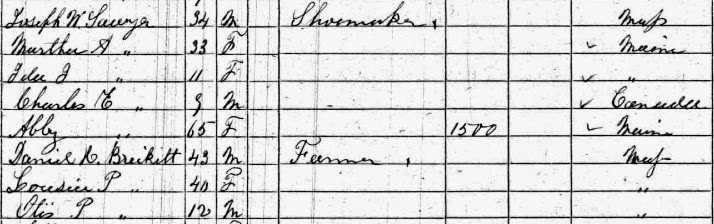 Joseph W Sawyer 34 M Shoemaker, Mass
Marther A " 33 F ✓ Maine
Ida J " 11 F ✓ "
Charles E " 9 M ✓ Canada
Abby " 65 F 1500 ✓ Maine
Daniel R. 43 M Farmer, Mass
P " 40 F "
Otis P " 12 M "